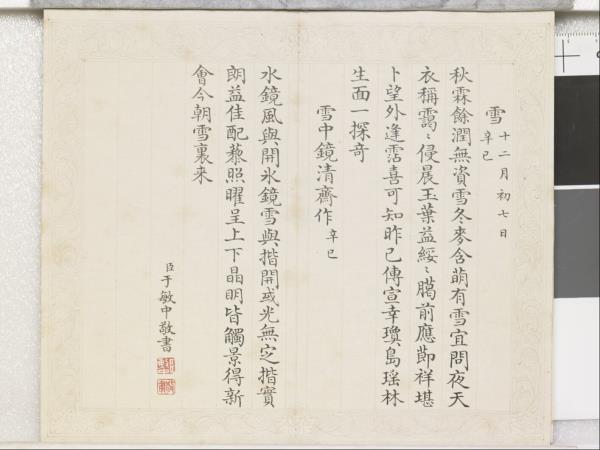 雪 辛巳 十二月初七日
秋霖餘潤無資雪冬麥含萌有雪宜問夜天
衣稱靄〻侵晨玉葉益綏〻臈前應節祥堪
卜望外逢霑喜可知昨已傳宣幸瓊島瑶林
生面一探竒
雪中鏡清齋作 辛巳
水鏡風與開氷鏡雪與揩開或光無㝎揩實
朗益佳配藜照曜呈上下晶明皆觸景得新
會今朝雪裏来
臣于敏中敬書